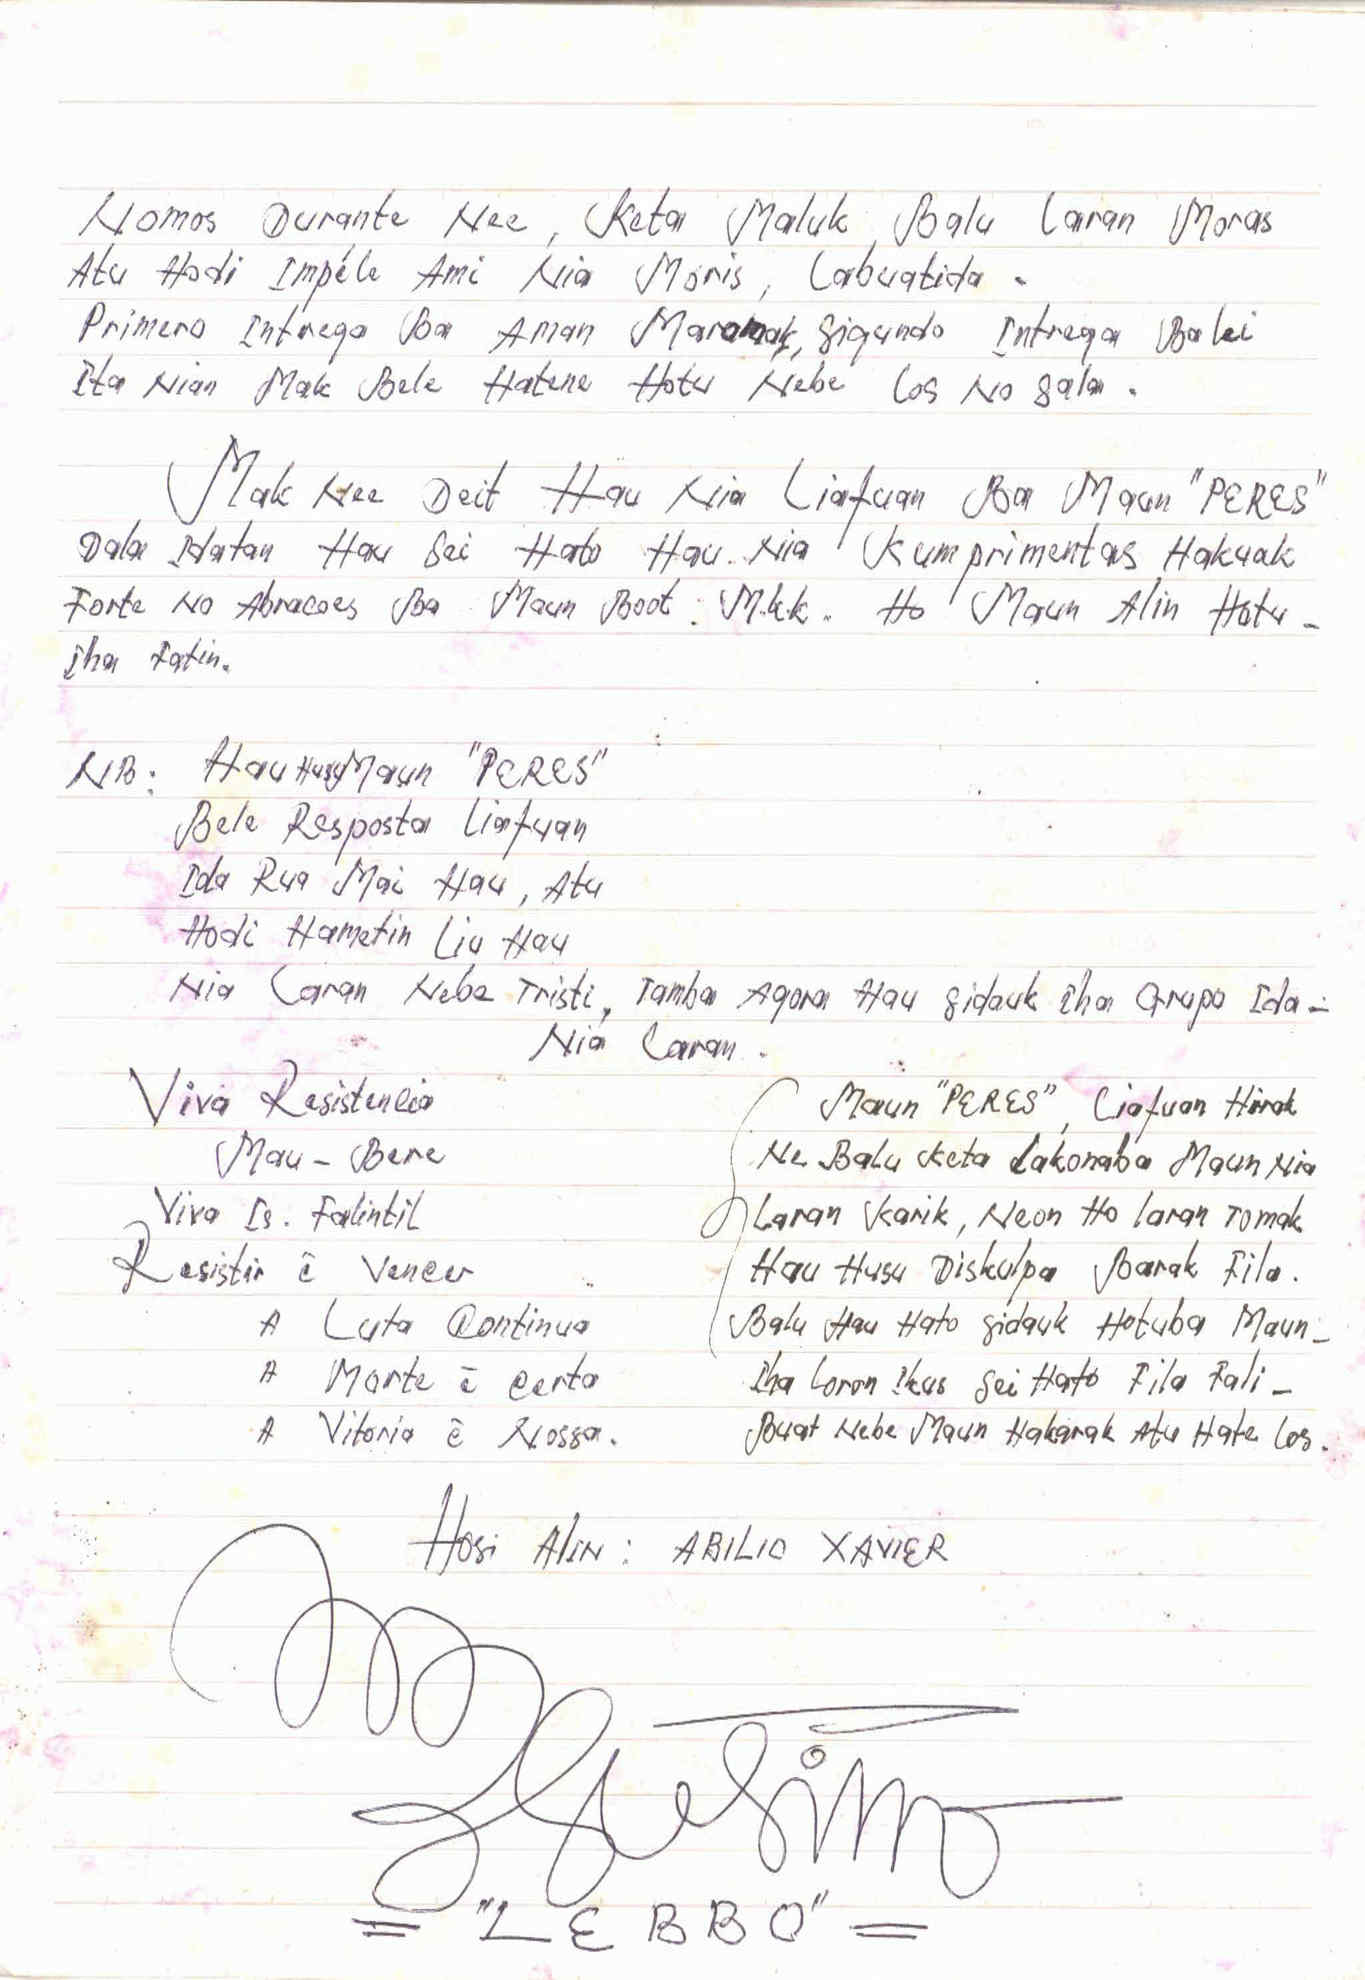 Nomos Durante Nee, Keta Maluk Balu Laran Moras
Atu Hodi Impéle Ami Nia Moris, Labuatida.
Primero Intrega Ba Aman Maromak, Sigundo Intrega Ba lei
Ita Nian Mak Bele Hatene Hotu Nebe Los No Sala.
Mak Nee Deit Hau Nia Liafuan Ba Maun "PERES"
Dala Natan Hau Sei Hato Hau Nia Kumprimentas Hakuak
Forte No Abracoes Ba Maun Boot. M.k.k. Ho Maun Alin Hotu-
Iha Fatin.
NB: Hau Husu Maun "PERES"
Bele Resposta Liafuan
Ida Rua Mai Hau, Atu
Hodi Hametin Liu Hau
Nia Laran Nebe Tristi, Tamba Agora Hau Sidauk Iha Grupo Ida-
Nia Laran.
Viva Resistencia
Mau-Bere
Viva Is. Falintil
Resistir ē Vencer
A Luta Continua
A Morte ē Certa
A Vitoria ē Nossa.
Maun "PERES", Liafuan Hirak
Ne Balu Keta Lakonaba Maun Nia
Laran Karik, Neon Ho laran Tomak
Hau Husu Diskulpa Barak Fila.
Balu Hau Hato Sidauk Hotuba Maun-
Iha loron Ikus Sei Hato Fila Fali-
Buat Nebe Maun Hakarak Atu Hate Los.
Hosi Alin: ABILIO XAVIER
= "LEBBO" =